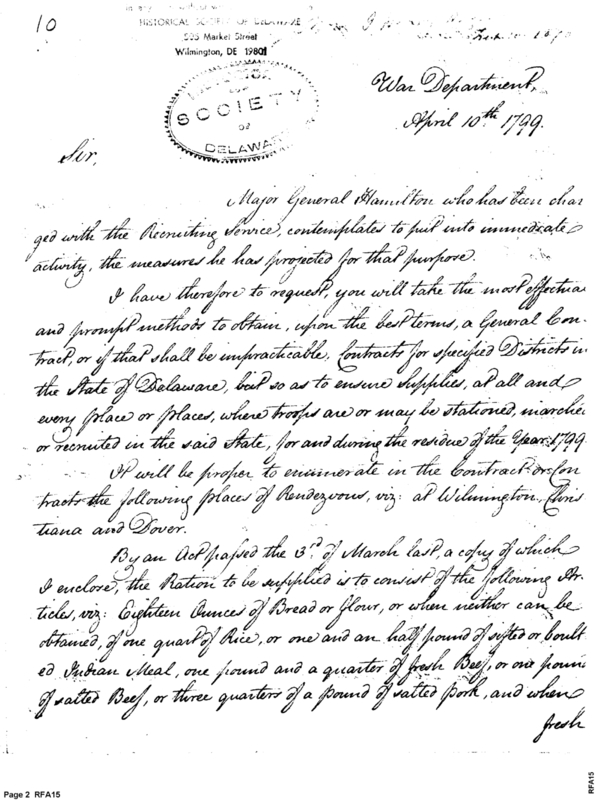 10
HISTORICAL SOCIETY OF DELAWARE
505 Market Street
Wilmington, DE 19801
HISTORICAL
SOCIETY
OF
DELAWARE
War Department,
April 10th 1799.
Sir,
Major General Hamilton who has been char
ged with the Recruiting Service, contemplates to put into immediate
activity, the measures he has projected for that purpose.
I have therefore to request, you will take the most effectua
and prompt methods to obtain, upon the best terms, a General Con-
tract, or if that shall be impracticable, Contracts for specified Districts in
the State of Delaware, but so as to ensure supplies, at all and
every place or places, where troops are or may be stationed, marche
or recruited in the said State, for and during the residue of the Year 1799
It will be proper to enumerate in the Contract or Con
tracts the following places of Rendezvous, viz: at Wilmington, Chris
tiana and Dover.
By an Act passed the 3rd of March last, a copy of which
I enclose, the Ration to be supplied is to consist of the following Ar-
ticles, viz: Eighteen Ounces of Bread or flour, or when neither can be
obtained, of one quart of Rice, or one and an half pound of sifted or boult
ed Indian Meal, one pound and a quarter of fresh Beef, or one poun
of salted Beef, or three quarters of a pound of salted pork, and when
fresh
Page 2 RFA15
RFA15